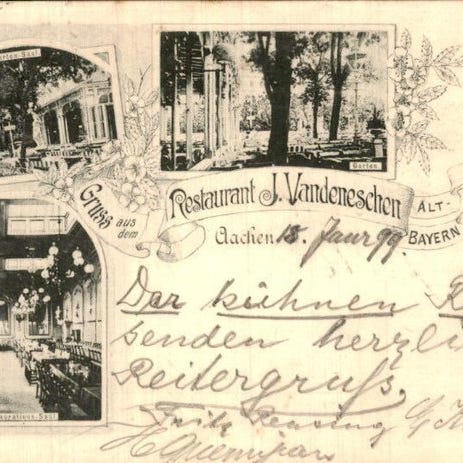 Garten-Saal
Garten
Gruss aus dem
Restaurant J. Vandeneschen
ALT-
BAYERN
Aachen 18. Janr 99
Der kühnen
senden herzli
Reitergruß.
Fritz